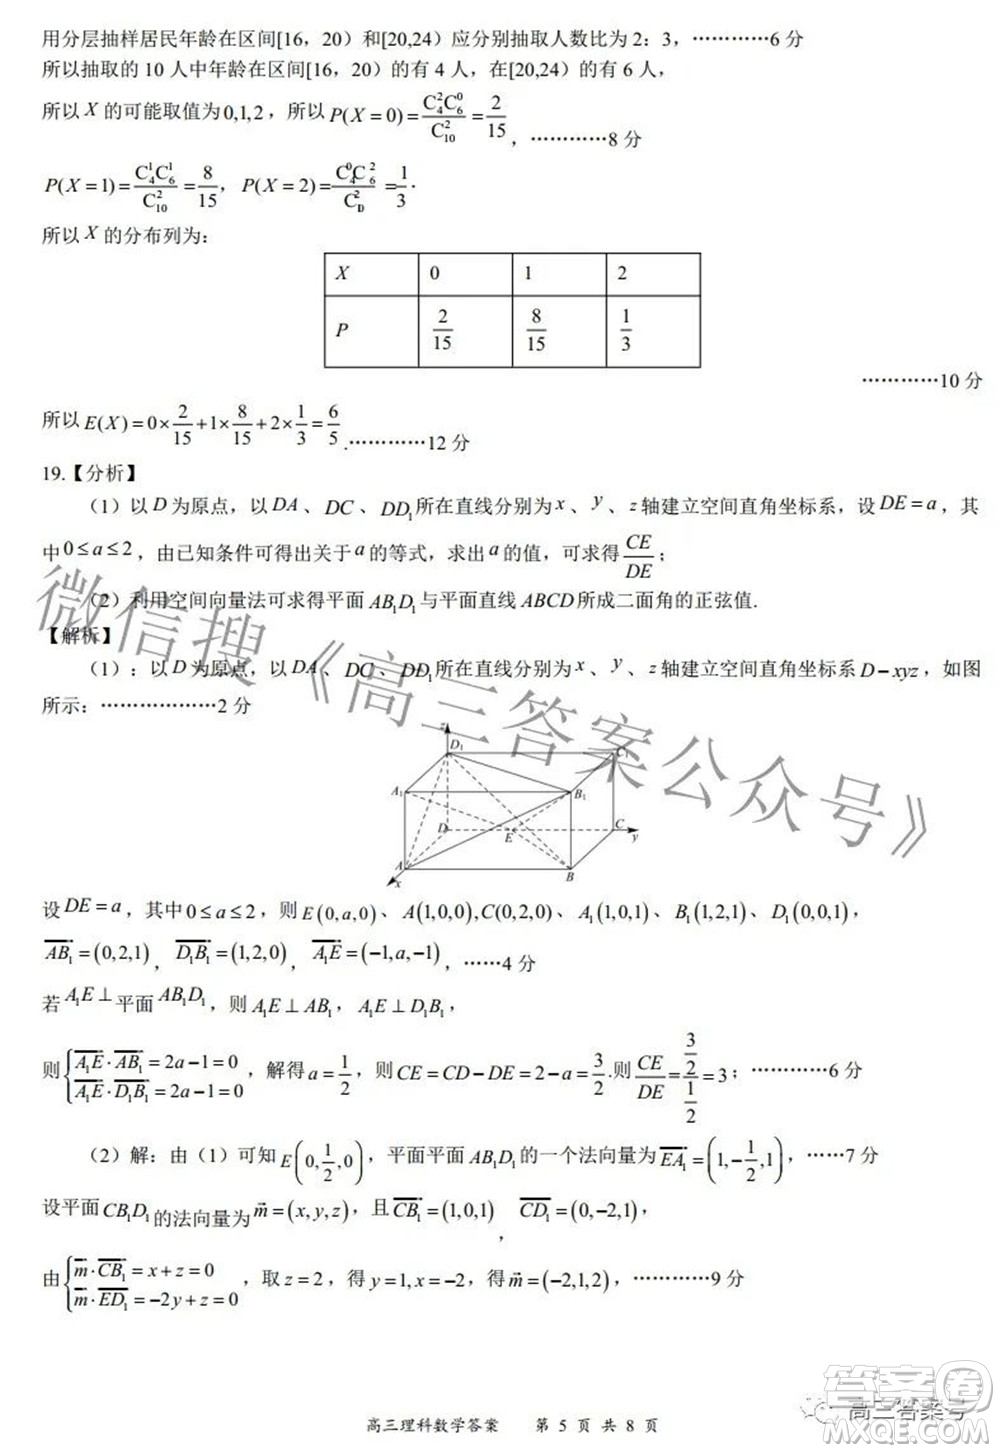 用分层抽样居民年龄在区间[16，20）和[20,24）应分别抽取人数比为 2：3，…………6 分
所以抽取的 10 人中年龄在区间[16，20）的有 4 人，在[20,24）的有 6 人，
所以 X 的可能取值为 0,1,2，所以 P(X=0)=C₄²C₆⁰/C₁₀²=2/15，…………8 分
P(X=1)=C₄¹C₆¹/C₁₀²=8/15，P(X=2)=C₄⁰C₆²/C₁₀²=1/3.
所以 X 的分布列为：
X 0 1 2
P 2/15 8/15 1/3
…………10 分
所以 E(X)=0×2/15+1×8/15+2×1/3=6/5.…………12 分
19.【分析】
（1）以 D 为原点，以 DA、DC、DD₁所在直线分别为 x、y、z 轴建立空间直角坐标系，设 DE=a，其
中 0≤a≤2，由已知条件可得出关于 a 的等式，求出 a 的值，可求得 CE/DE；
（2）利用空间向量法可求得平面 AB₁D₁与平面直线 ABCD 所成二面角的正弦值.
【解析】
（1）：以 D 为原点，以 DA、DC、DD₁所在直线分别为 x、y、z 轴建立空间直角坐标系 D-xyz，如图
所示：………………2 分
z
D₁ C₁
A₁ B₁
D E C y
A B
x
设 DE=a，其中 0≤a≤2，则 E(0,a,0)、A(1,0,0),C(0,2,0)、A₁(1,0,1)、B₁(1,2,1)、D₁(0,0,1)，
AB₁=(0,2,1)，D₁B₁=(1,2,0)，A₁E=(-1,a,-1)，……4 分
若 A₁E⊥平面 AB₁D₁，则 A₁E⊥AB₁，A₁E⊥D₁B₁，
则{A₁E·AB₁=2a-1=0 A₁E·D₁B₁=2a-1=0，解得 a=1/2，则 CE=CD-DE=2-a=3/2.则 CE/DE=(3/2)/(1/2)=3；…………6 分
（2）解：由（1）可知 E(0,1/2,0)，平面平面 AB₁D₁的一个法向量为 EA₁=(1,-1/2,1)，……7 分
设平面 CB₁D₁的法向量为 m=(x,y,z)，且 CB₁=(1,0,1)，CD₁=(0,-2,1)，
由{m·CB₁=x+z=0 m·ED₁=-2y+z=0，取 z=2，得 y=1,x=-2，得 m=(-2,1,2)，…………9 分
高三理科数学答案 第 5 页 共 8 页
微信搜《高三答案公众号》
高三答案号
答案圈
MXQE.COM